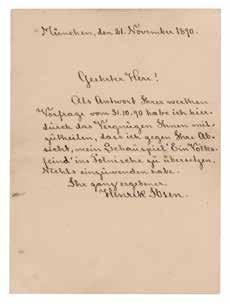 München, den 21. November 1890.
Geehrter Herr!
Als Antwort Ihrer werthen
Vorfrage vom 31.10.90 habe ich hier-
durch das Vergnügen Ihnen mit-
zutheilen, dass ich gegen Ihre Ab-
sicht, mein Schauspiel "Ein Volks-
feind" ins Polnische zu übersetzen,
Nichts einzuwenden habe.
Ihr ganz ergebener
Henrik Ibsen.